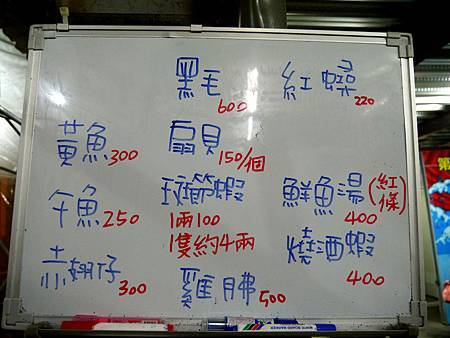 黑毛 600
紅蟳 220
黃魚 300
扇貝 150/個
午魚 250
斑節蝦
1兩100
1隻約4兩
鮮魚湯(紅條)
400
赤翅仔
300
燒酒蝦
400
雞胇 500